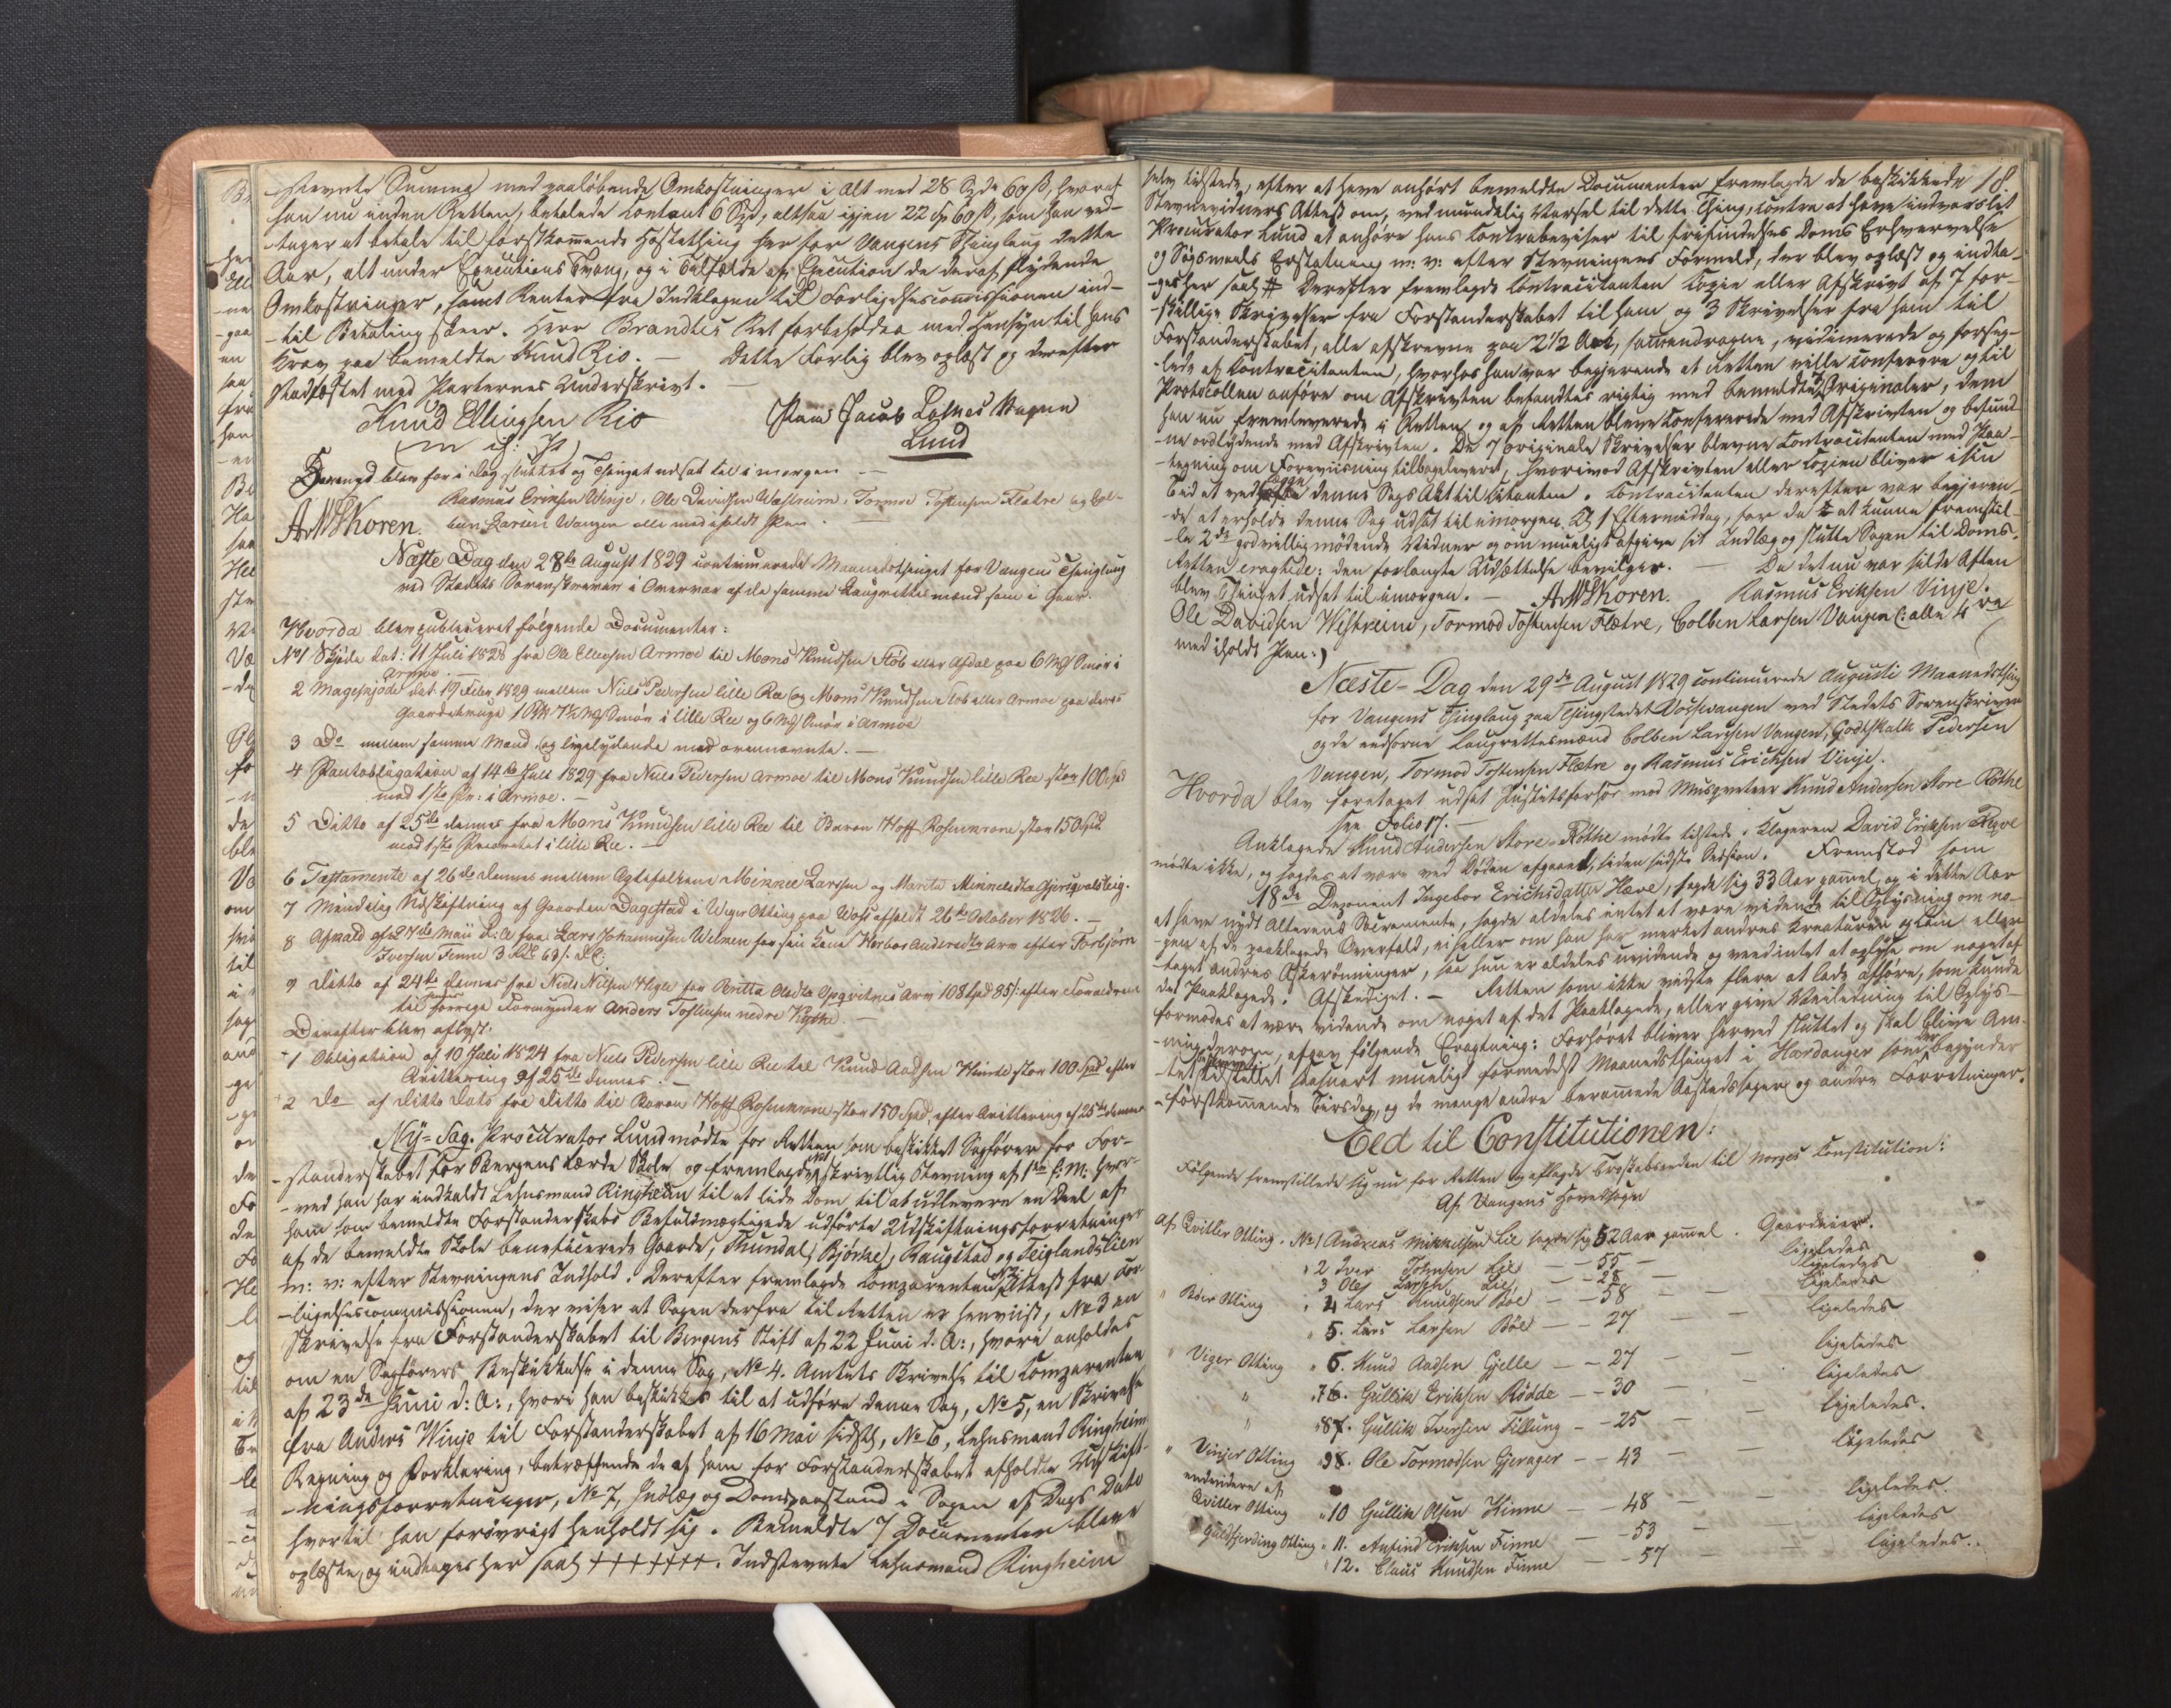 stevnte Summa med paaløbende Omkostninger i alt med 28 Spd 60 ß, hvoraf
han nu inden Retten, betalede contant 6 Spd, altsaa igjen 22 Sp 60 ß, som han ved-
tager at betale til førstkommende Høstething her for Vangens Thinglaug dette
Aar, alt under Executions Tvang, og i Tilfælde af Execution de deraf flydende
Omkostninger, samt Renter fra Indklagen til Forligelsescommissionen ind-
-til Betaling skeer. Herr Brandtes Ret forbeholdes med Hensyn til hans
Krav paa bemeldte Knud Rio. — Dette Forlig blev oplæst og derefter
stadfæstet med Parternes Underskrivt. —
Knud Ellingsen Rio Hans Jacob Lahnes Vagne
m: ih: P Lund
Saavengd blev for i dag sluttet og Thinget udsat til i morgen —
Rasmus Erichsen Winje, Ole Davidsen Wæstreim, Tormoe Tostensen Flatre og Col-
A. M. S. Koren. ben Larsen Vangen alle med iholdt Pen. —
Næste Dag den 28de August 1829 continuerede Maanedsthinget for Vangens Thinglaug
ved Stedets Sorenskriver i Overvær af de samme Laugrettesmænd som i Gaar.
Hvorda blev publiceret følgende Documenter:
No 1 Skjøde dat: 11 Juli 1828 fra Ole Ellefsen Armoe til Mons Knudsen Støb eller Afdal paa 6 Mk Smør i
Armoe. —
2 Mageskjøde dat. 19 Febr 1829 mellem Niels Pedersen lille Ree og Mons Knudsen Støb eller Armoe paa deres
Gaardebruge 1 Pd 7½ Mk Smør i lille Ree og 6 Mk Smør i Armoe
3 Do mellem samme Mænd, og ligelydende med ovennævnte. —
4 Pantobligation af 14de Juli 1829 fra Niels Pedersen Armoe til Mons Knudsen lille Ree stor 100 Spd
mod 1ste Pr: i Armoe. —
5 Ditto af 25de dennes fra Mons Knudsen lille Ree til Baron Hoff Rosenkrone stor 150 Spd
mod 1ste Prioritet i lille Ree. —
6 Testamente af 26de dennes mellem Ægtefolkene Minnee Larssen og Marita Minnesdtr Gjersqvalsteig.
7 Mindelig Udskiftning af Gaarden Dagestad i Wiger Otting paa Voss afholdt 26de October 1826. —
8 Afkald af 27de Maii d: A fra Lars Johannessen Wilmen for sin Kone Herbor Andersdtr Arv efter Torbjørn
Iversen Finne 3 Rd 63 ß. —
9 Ditto af 24de dennes fra Niels Nilsen Hegle for Britta Olsdtr Opqvitnes Arv 108 Spd 85 ß: efter Forældrene
til forrige Formynder Anders Tostensen nedre Kythe —
Derefter blev aflyst:
1 Obligation af 10 Juli 1824 fra Niels Pedersen lille Ree til Knud Aadsen Himle stor 100 Spd, efter
Qvittering af 25de dennes. —
2 Do af ditto Dato fra ditto til Baron Hoff Rosenkrone stor 150 Spd, efter Qvittering af 25de dennes
Ny-Sag. Procurator Lund mødte for Retten som beskikket Sagfører for For-
-standerskabet for Bergens lærde Skole og fremlagde skrivtlig Stevning af 1ste f: M: hvor-
-ved han har indkaldt Lehnsmand Ringheim til at lide Dom til at udlevere en Deel af
ham som bemeldte Forstanderskabs Befuldmægtigede udførte Udskiftningsforretninger
af de bemeldte Skole beneficerede Gaarde, Mundal, Bjørke, Haugstad og Teiglandslien
m: v: efter Stevningens Indhold. Derefter fremlagde Comparenten Attest fra For-
-ligelsescommissionen, der viser at Sagen derfra til Retten er henviist, No 3 en
Skrivelse fra Forstanderskabet til Bergens Stift af 22 Juni d. A:, hvori anholdes
om en Sagførers Beskikkelse i denne Sag, No 4. Amtets Skrivelse til Comparenten
af 23de Juni d: A:, hvori han beskikkes til at udføre denne Sag, No 5, en Skrivelse
fra Anders Winje til Forstanderskabet af 16 Mai sidstl, No 6, Lehnsmand Ringheims
Regning og Forklaring, betræffende de af ham for Forstanderskabet afholdte Udskift-
-ningsforretninger, No 7, Indlæg og Domspaastand i Sagen af Dags Dato
hvortil han forøvrigt henholdt sig. Bemeldte 7 Documenter bleve
oplæste, og indtages her saal: +++++++. Indstevnte Lehnsmand Ringheim
selv tilstede, efter at have anhørt bemeldte Documenter fremlagde de beskikkede 18
Stevnevidners Attest om, ved mundtlig Varsel til dette Thing, contra at have indvarslet
Procurator Lund at anhøre hans Contrabeviser til frifindelses Doms Erhvervelse
og Søgsmaals Erstatning m: v: efter Stevningens Formeld, der blev oplæst og indta-
-ges her saal: # Derefter fremlagde Contracitanten Copie eller Afskrivt af 7 for-
-skjellige Skrivelser fra Forstanderskabet til ham og 3 Skrivelser fra ham til
Forstanderskabet, alle afskrevne paa 2½ Ark, sammendragne, vidimerede og forseg-
-lede af Contracitanten, hvorhos han var begjerende at Retten ville conferere og til
Protocollen anføre om Afskrivten befandtes rigtig med bemeldte Originaler, dem
han nu fremleverede i Retten og af Retten bleve confererede med Afskrivten og befund-
-ne ordlydende med Afskrivten. De 7 originale Skrivelser bleve Contracitanten med Paa-
-tegning om Foreviisning tilbageleveret, hvorimod Afskrivten eller Copien bliver i sin
Tid at vedlægge denne Sags Akt til Citanten. Contracitanten derefter var begjeren-
-de at erholde denne Sag udsat til imorgen Kl 1 Eftermiddag, for da at kunne fremstil-
-le 2de godvillig mødende Vidner og om mueligt afgive sit Indlæg og slutte Sagen til Doms.
Retten eragtede: den forlangte Udsættelse bevilges. — Da det nu var silde Aften
blev Thinget udsat til imorgen. — A. M. S. Koren. Rasmus Eriksen Vinje.
Ole Davidsen Westreim, Tormod Tostensen Flætre, Colben Larsen Vangen (: alle 4re
med iholdt Pen:)
Næste-Dag den 29de August 1829 continuerede Augusti Maanedsthing
for Vangens Thinglaug paa Thingstedet Vossevangen ved Stedets Sorenskriver
og de eedsorne Laugrettesmænd Colben Larsen Vangen, Godtskalk Pedersen
Vangen, Tormod Tostensen Flætre og Rasmus Erichsen Vinje.
Hvorda blev foretaget udsat Justitsforhør mod Musqveteer Knud Andersen Store-Røthe
see Folio 17. —
Anklagede Knud Andersen Store-Røthe mødte tilstede. Klageren David Eriksen Rqve
mødte ikke, og sagdes at være ved Døden afgaaet, siden sidste Session. Fremstod som
18de Deponent Ingebor Erichsdatter Hæve, sagde sig 33 Aar gammel, og i dette Aar
at have nydt Alterens Sacramente, sagde aldeles intet at være vidende til Oplysning om no-
-gen af de paaklagede Overfald, ei heller om han har mærket andres Kreaturer og Liin eller
taget andres Askerønninger, saa hun er aldeles uvidende og veed intet at oplyse om noget af
det Paaklagede. Afskediget. — Retten som ikke vidste flere at lade afhøre, som kunde
formodes at være vidende om noget af det Paaklagede, eller give Veiledning til Oplys-
-ning derom, afgav følgende Eragtning: Forhøret bliver herved sluttet og skal blive Am-
-tet tilstillet saasnart mueligt formedelst Maanedsthinget i Hardanger som der begynder
-førstkommende Tirsdag, og de mange andre berammede Aastedssager og andre Forretninger.
Eed til Constitutionen:
Følgende fremstillede sig nu for Retten og aflagde Troskabseeden til Norges Constitution:
Af Vangens Hovedsogn
Af Qvitler Otting. No 1 Andreas Mikkelsen Lie sagde sig 52 Aar gammel. Gaardeier.
" 2 Iver Johnsen Lie — — 55 — ligeledes
3 Ole Larsen Lie — — 28 — ligeledes
" Bøer Otting " 4 Lars Knudsen Bøe — — 58 — — ligeledes
" 5. Lars Larsen Bøe — — 27 — ligeledes
" Viger Otting " 6. Knud Aadsen Gjelle — — 27 — — ligeledes
" " 7. Gullik Eriksen Rødde — — 30 — ligeledes
" " 8. Gullik Iversen Tillung — — 25 — — ligeledes.
" Vinjer Otting " 9. Ole Tormodsen Gjerager — — 43 — — ligeledes
endvidere af
Qvitler Otting " 10 Gullik Olsen Hinne — — 48 — — ligeledes.
" Guldfjerding Otting " 11. Anfind Eriksen Finne — — 53 — — ligeledes
" 12. Claus Knudsen Finne — 57 — — ligeledes..